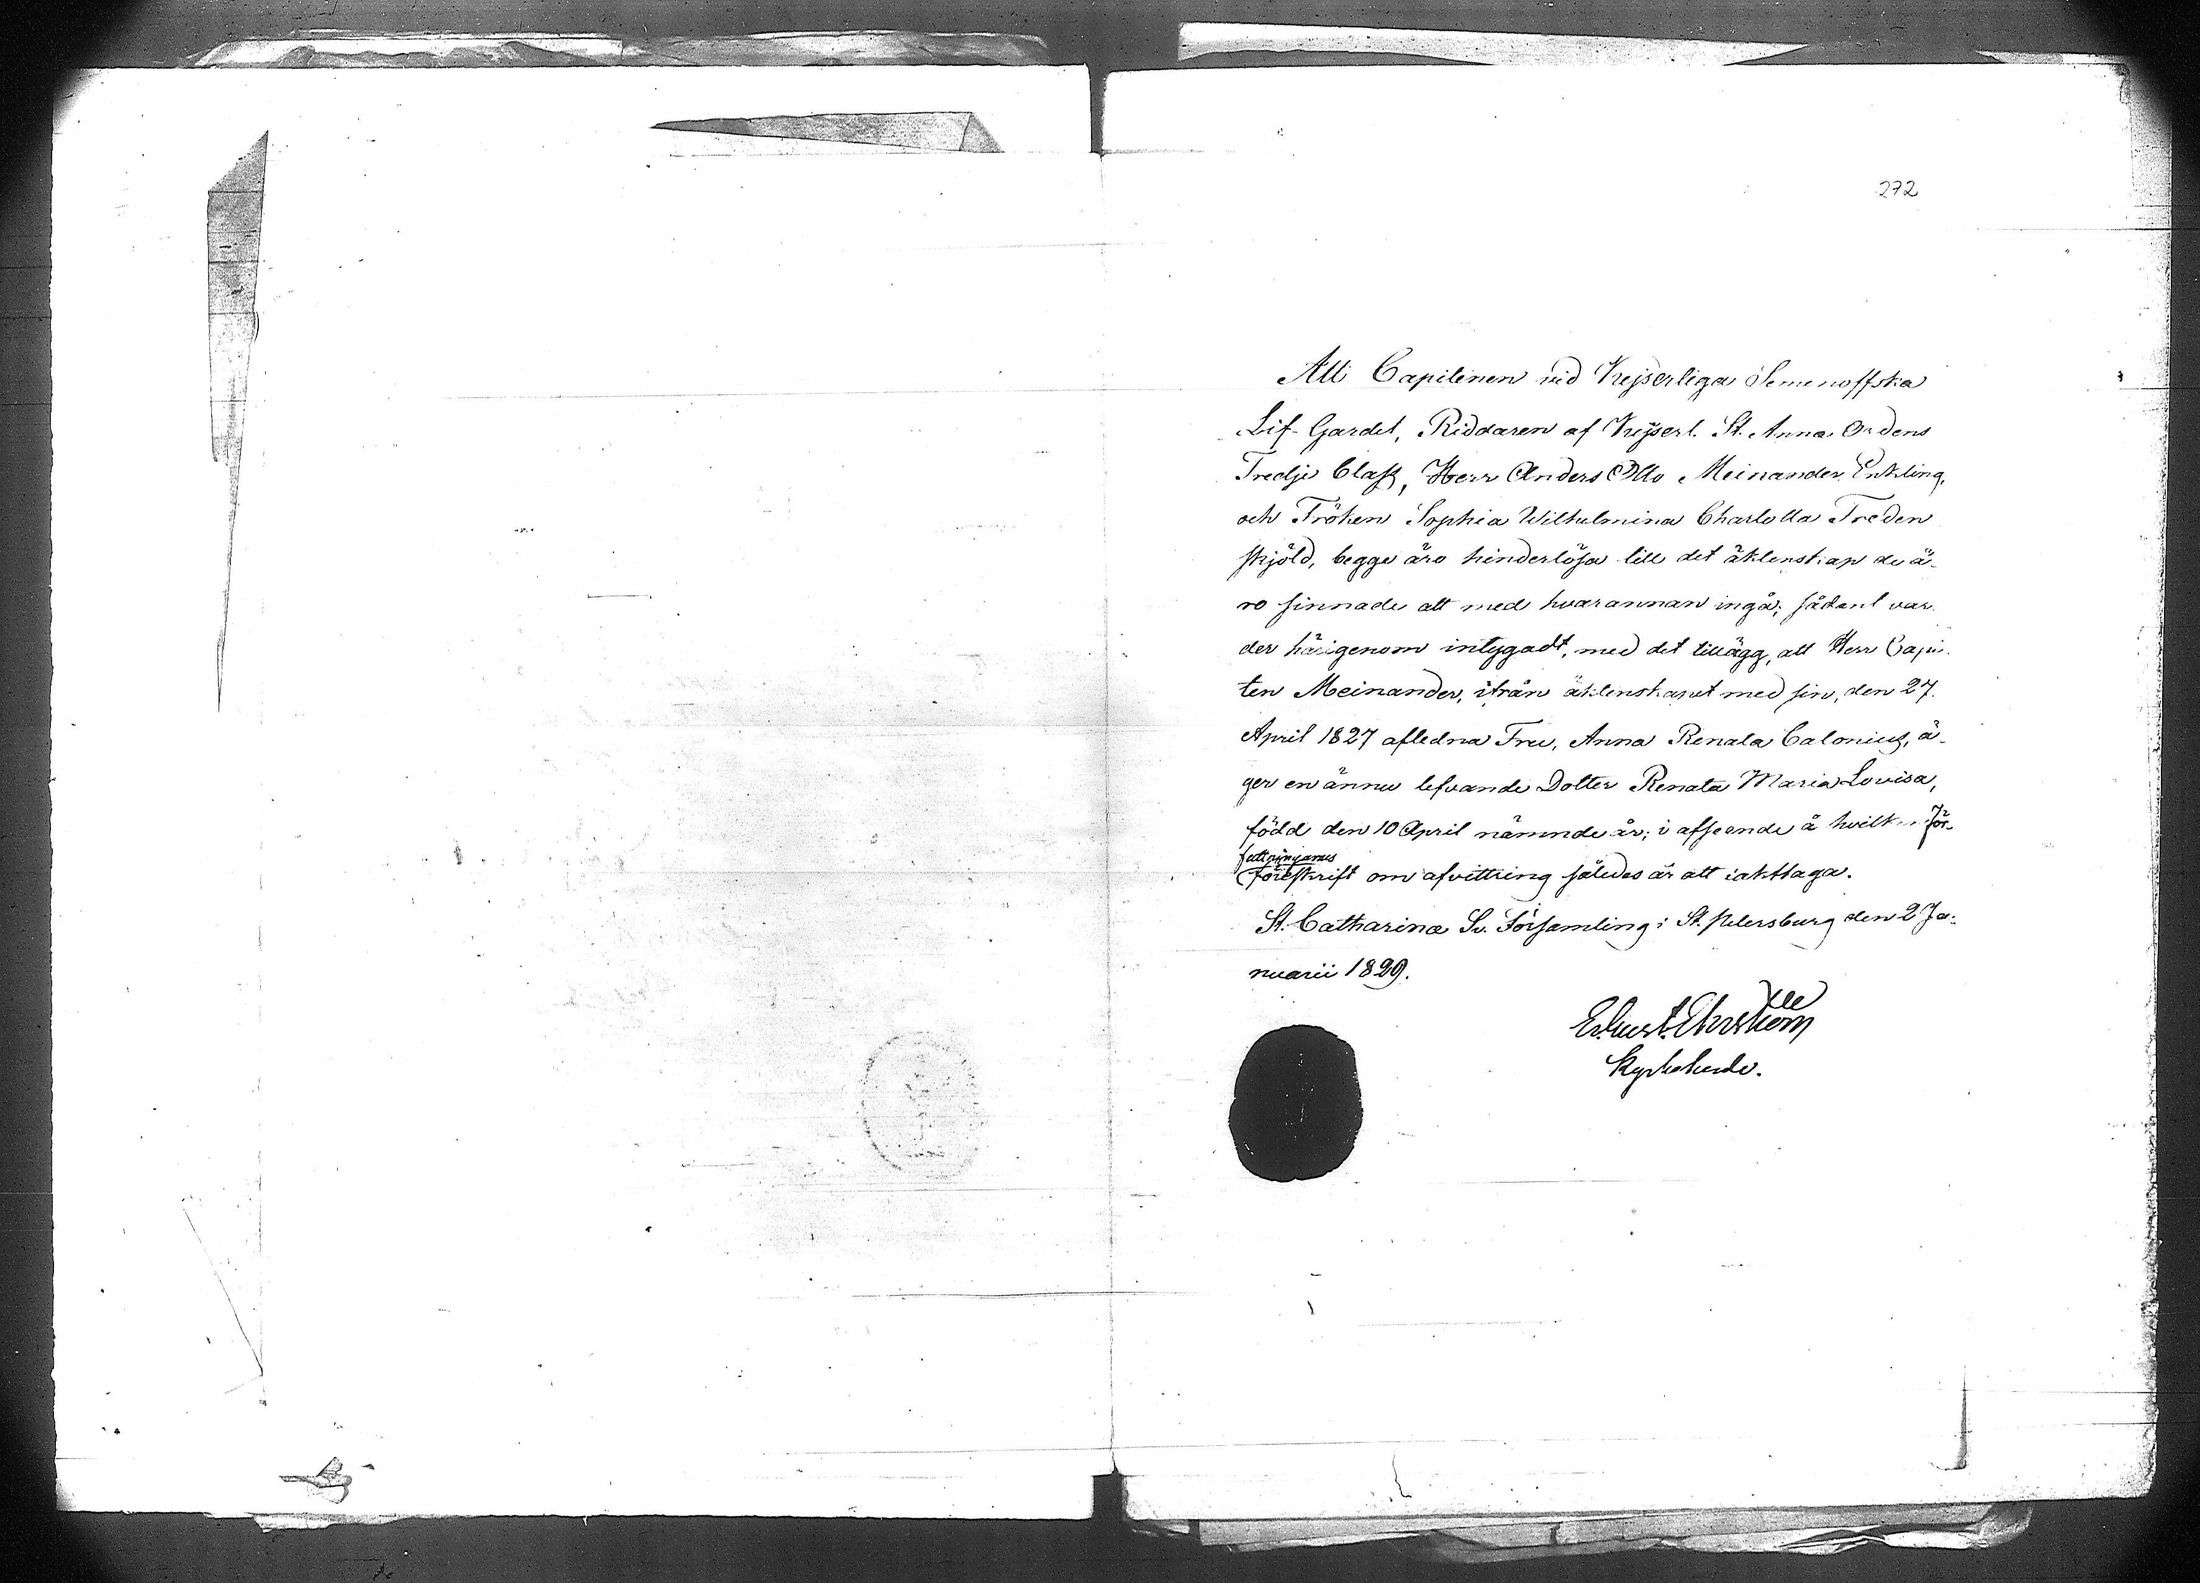 272
Att Capitenen vid Kejserliga Semenoffska
Lif-Gardet, Riddaren af Kejserl. St. Anna Ordens
Tredje Class, Herr Anders Otto Meinander, Enkling,
och Fröken Sophia Wilhelmina Charlotta Freden
skjöld, begge äro hinderlösa till det äktenskap de ä-
ro sinnade att med hvarannan ingå; sådant var-
der härigenom intygadt, med det tillägg, att Herr Capi-
ten Meinander, ifrån äktenskapet med sin, den 27.
April 1827 aflidna Fru, Anna Renata Calonius, ä-
ger en ännu lefvande Dotter Renata Maria Lovisa,
född den 10 April nämnde år; i afseende å hvilken För-
fattningarnes
föreskrift om afvittring således är att iakttaga.
St. Catharina Sv. Församling i St. Petersburg den 2 Ja-
nuarii 1829.
Ehrström
Kyrkoherde.